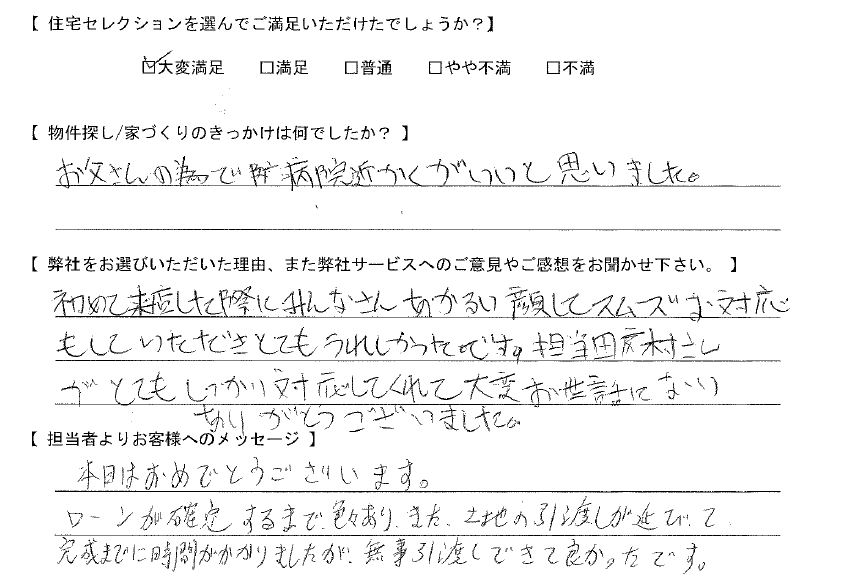 【 住宅セレクションを選んでご満足いただけたでしょうか？】
☑大変満足 □満足 □普通 □やや不満 □不満
【 物件探し/家づくりのきっかけは何でしたか？ 】
お父さんの為で 病院近かくがいいと思いました。
【 弊社をお選びいただいた理由、また弊社サービスへのご意見やご感想をお聞かせ下さい。 】
初めて来店した際にみんなさんあかるい顔してスムーズな対応
もしていただきとてもうれしかったです。担当
がとてもしっかり対応してくれて大変お世話になり
ありがとうございました。
【 担当者よりお客様へのメッセージ 】
本日はおめでとうございます。
ローンが確定するまで色々あり、また、土地の引渡しが延びて
完成までに時間がかかりましたが、無事引渡しできて良かったです。